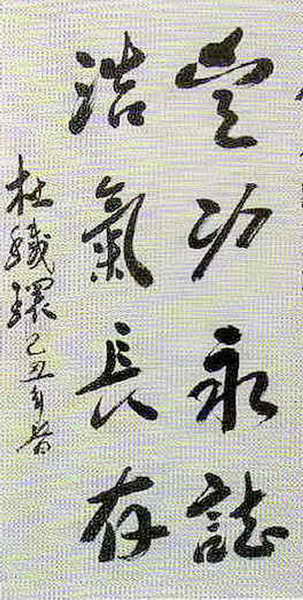 崇功永誌
浩氣長存
杜鐵環己丑年